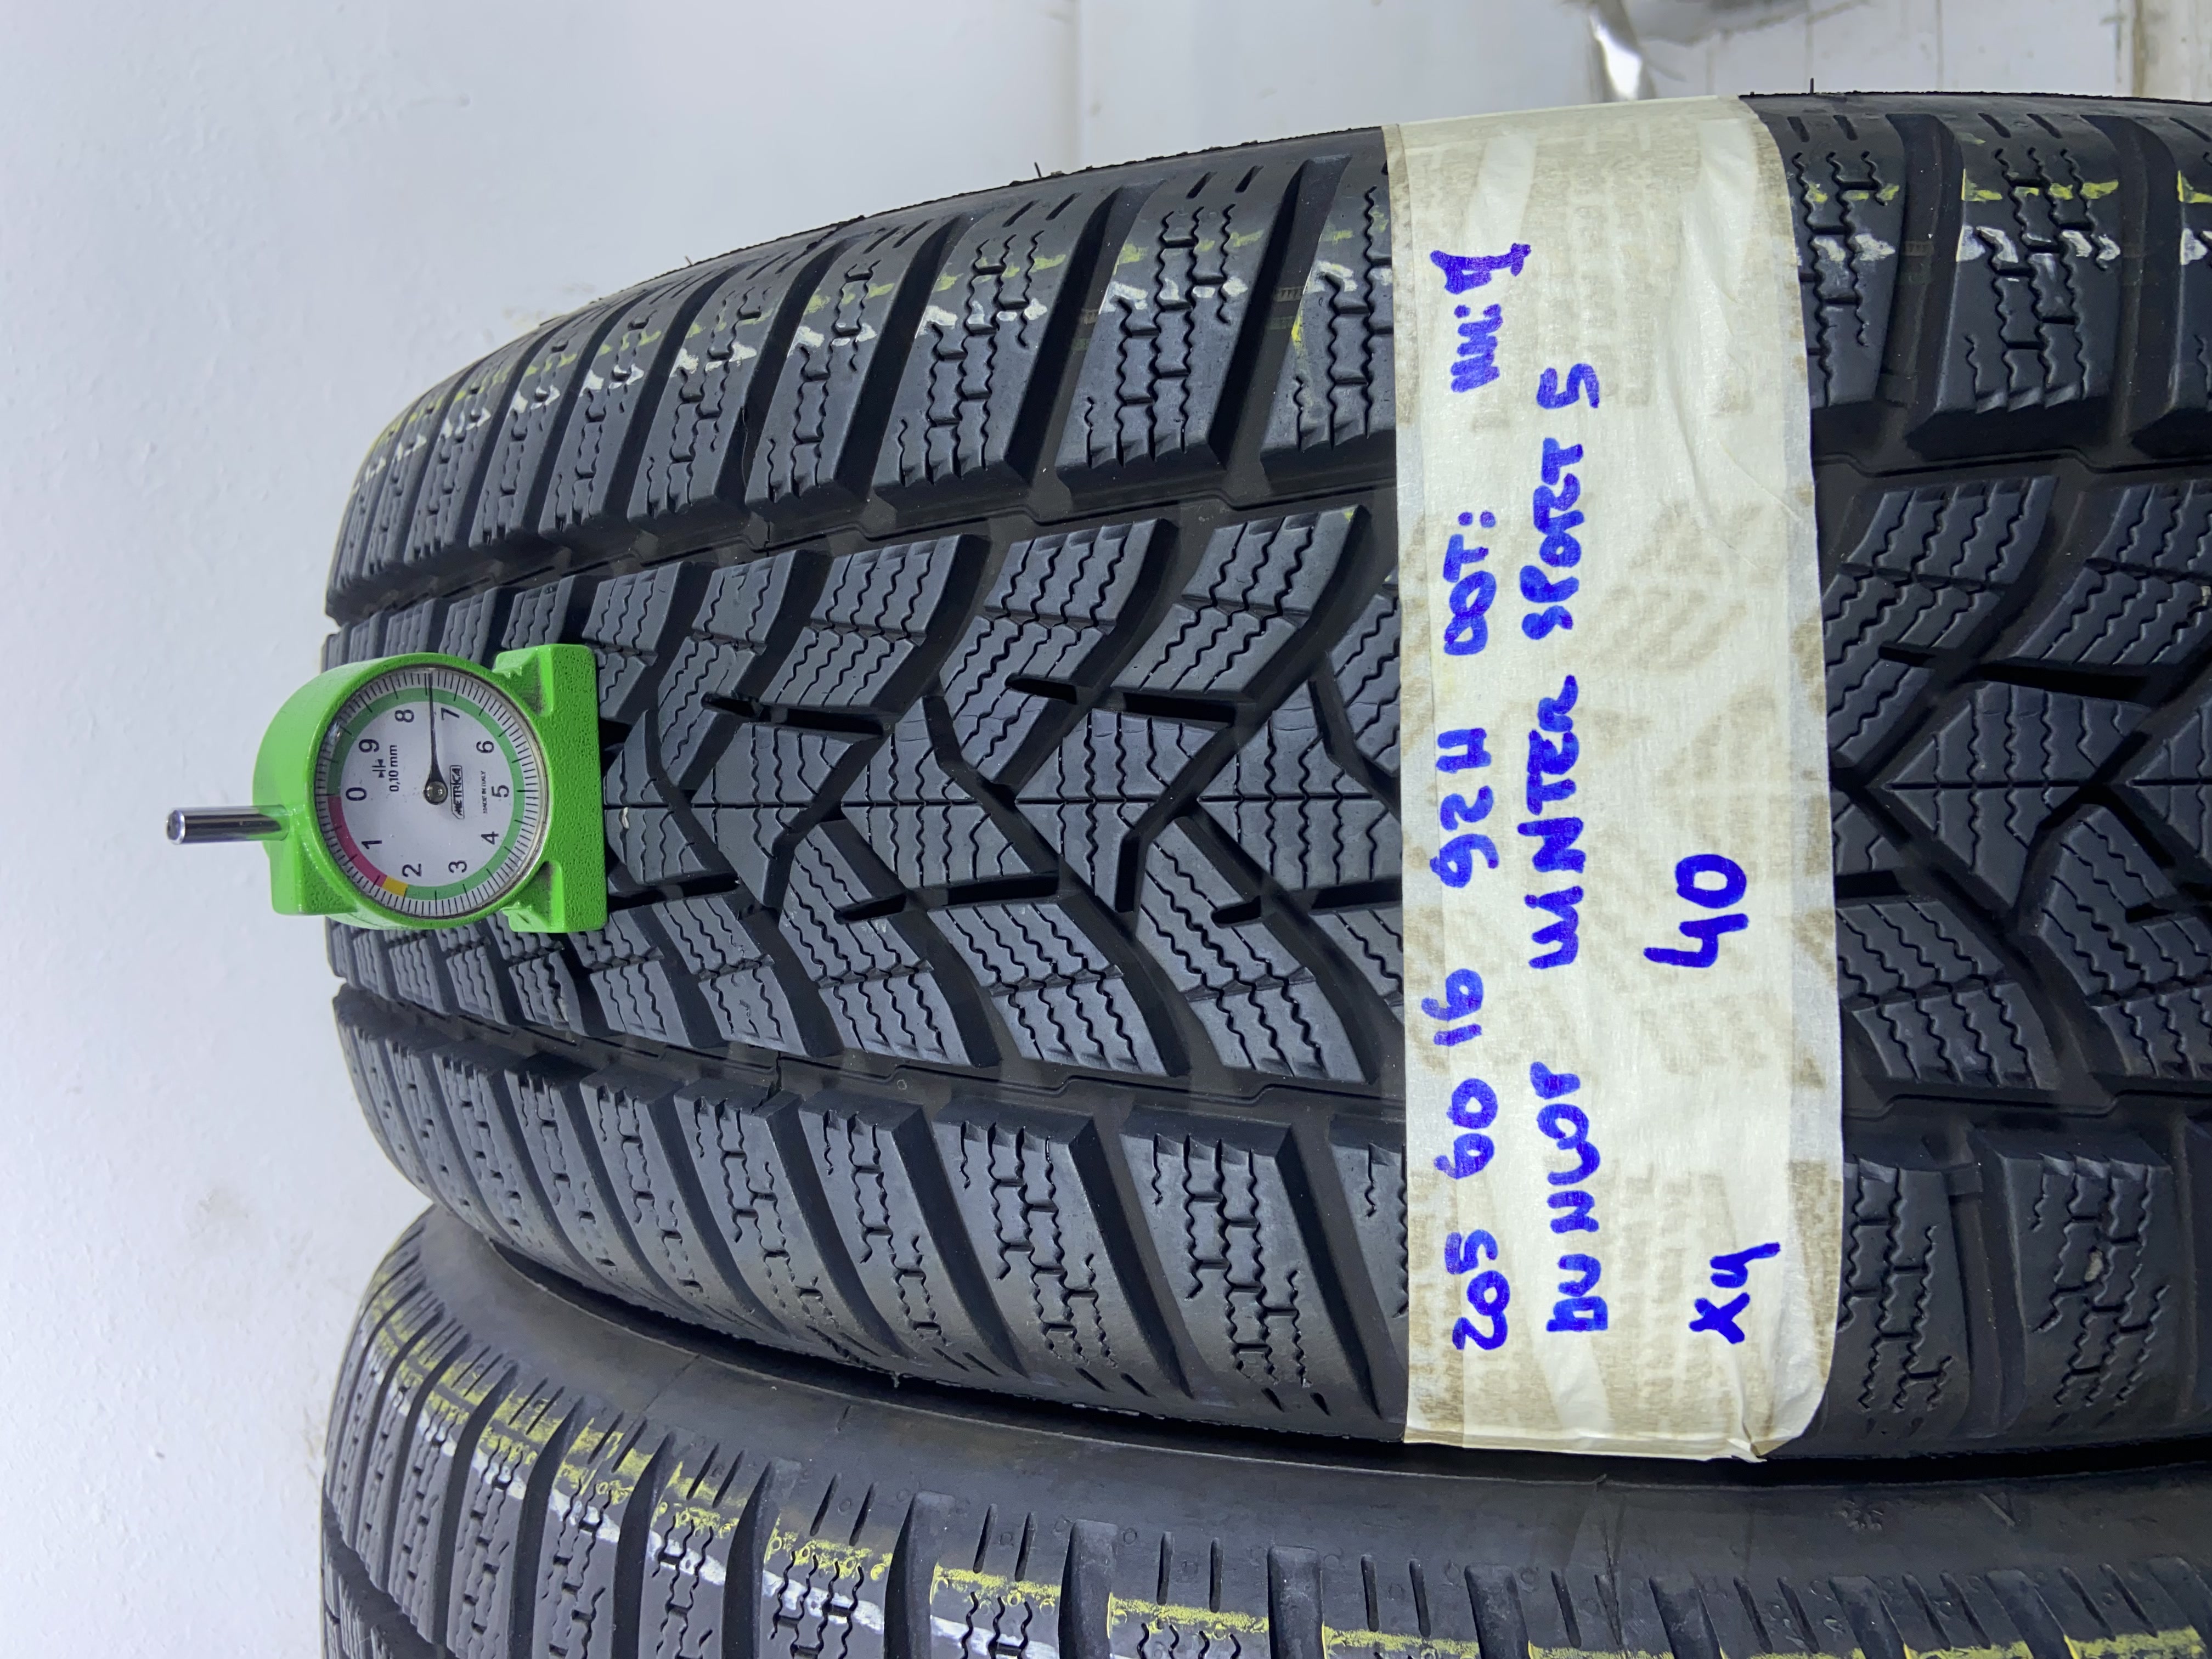 205 60 16 92H DOT:
DUNLOP WINTER SPORT 5
X4 40
0
1
2
3
4
5
6
7
8
9
0,10 mm
METRICA
MADE IN ITALY